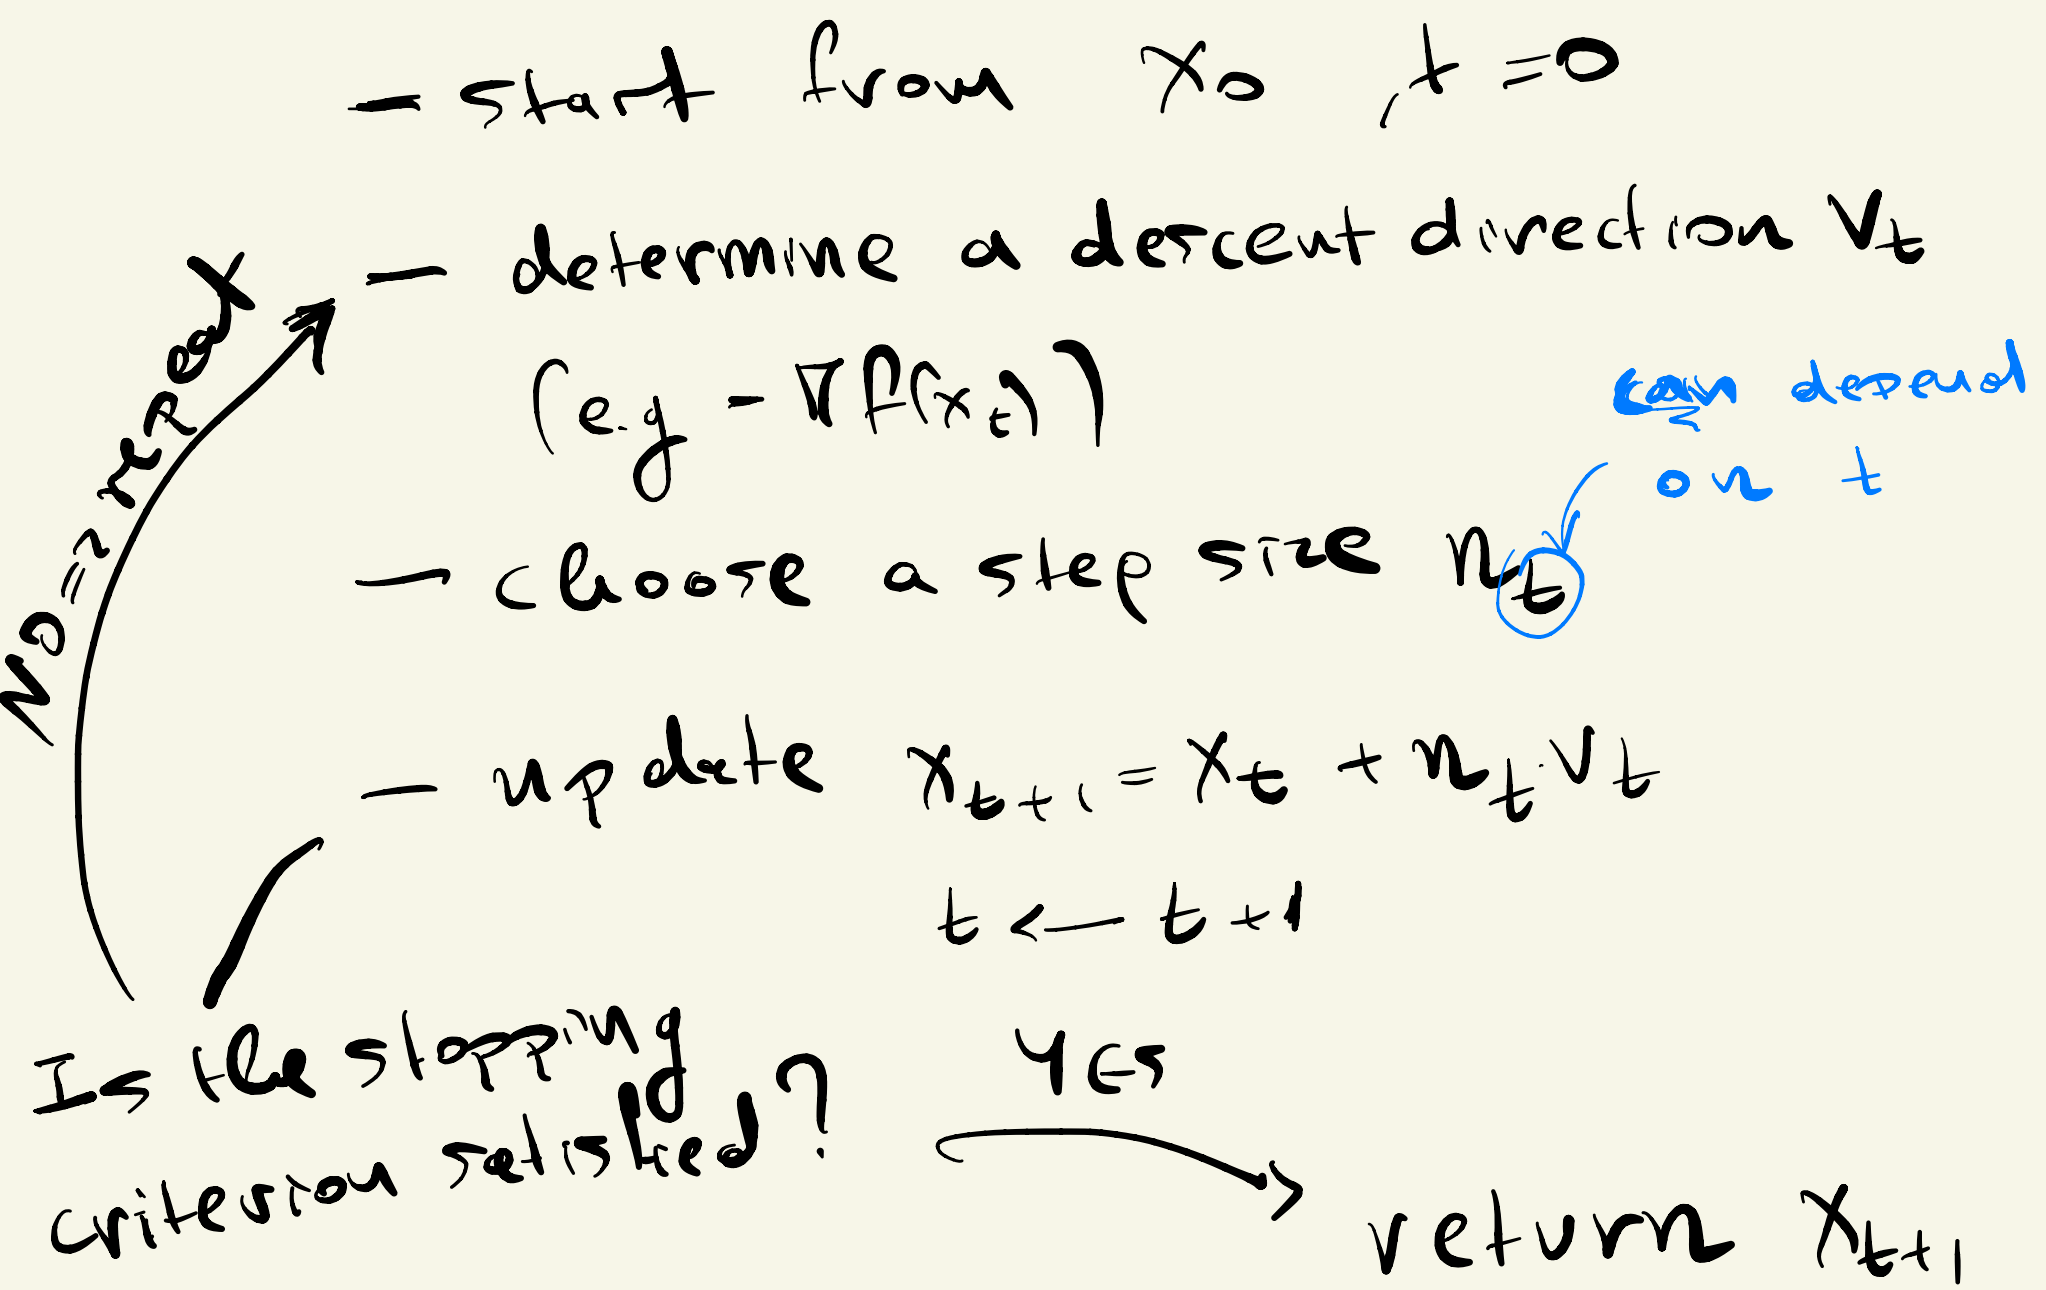 - start from x₀ , t = 0
- determine a descent direction v_t
(e.g - ∇f(x_t))
can depend
on t
- choose a step size η_t
- update x_{t+1} = x_t + η_t · v_t
t ← t + 1
No => repeat
Is the stopping
criterion satisfied?
YES
return x_{t+1}